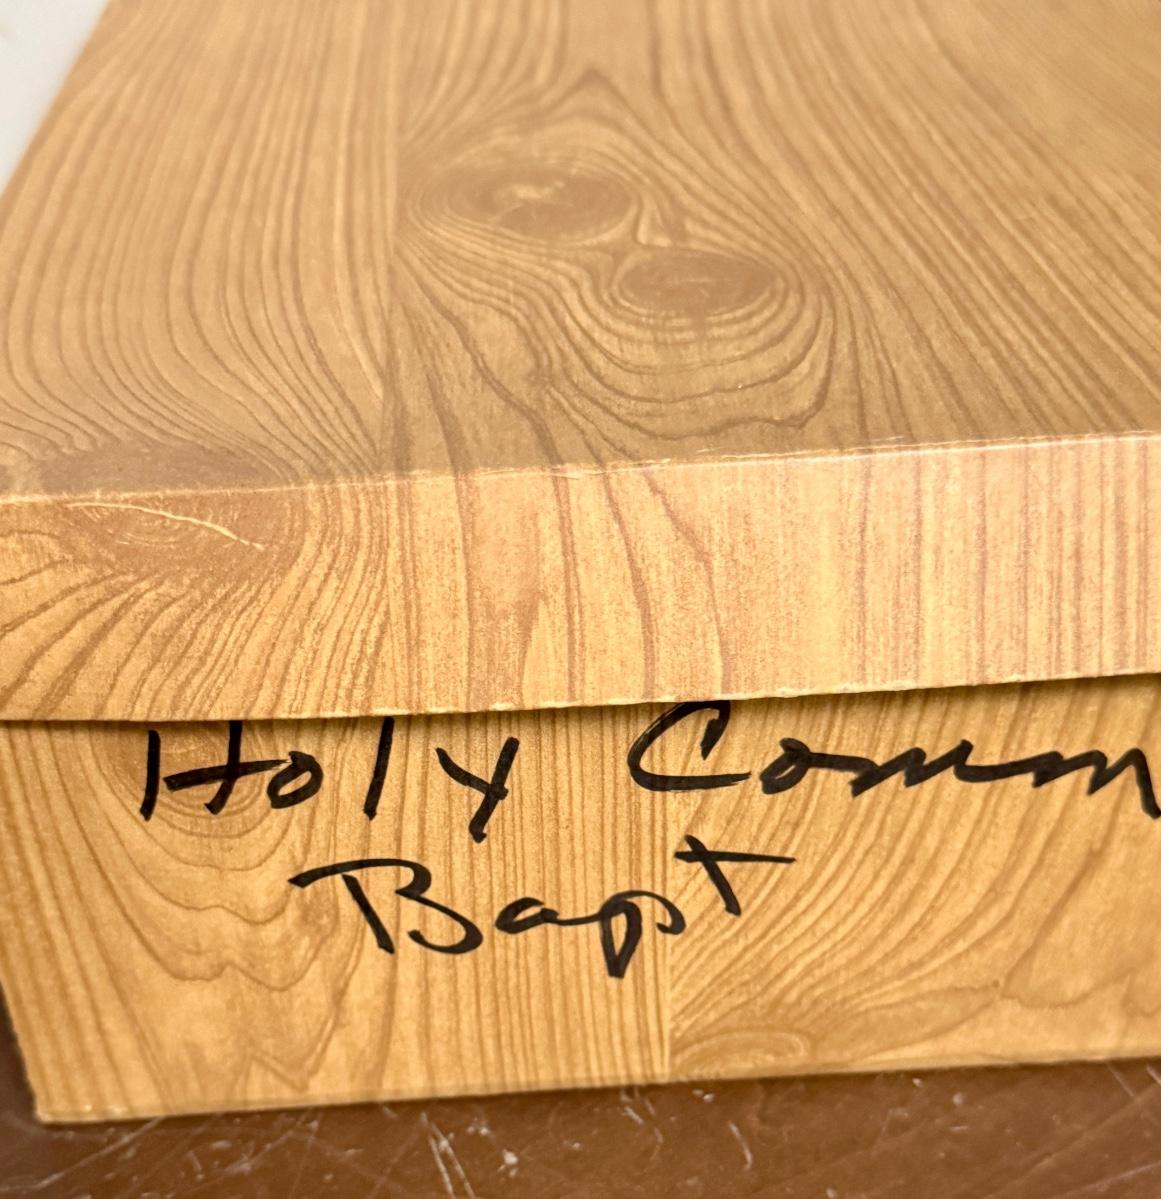 Holy Comm
Bapt